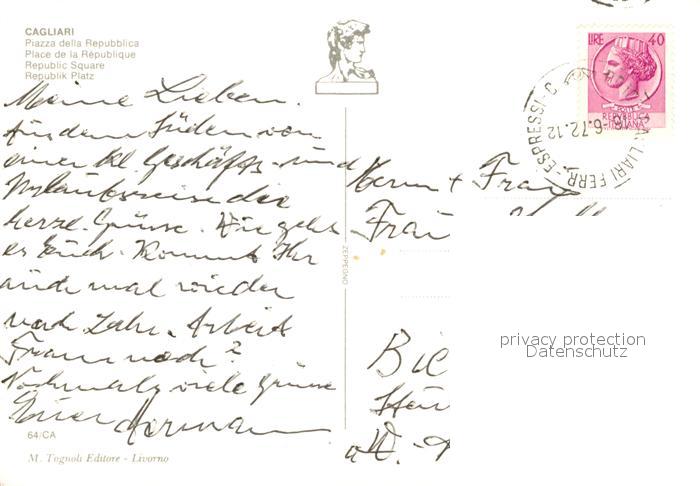 CAGLIARI
Piazza della Repubblica
Place de la République
Republic Square
Republik Platz
Meine Lieben.
Aus dem Süden von
einer kl. Geschäfts- und
Urlaubsreise die
herzl. Grüsse. Wie geht
es Euch. Kommt Ihr
auch mal wieder
nach Arbeit
noch?
Nochmals viele Grüsse
Euer Hermann
64/CA
M. Tognoli Editore - Livorno
ZEPPEGNO
LIRE 40
POSTE
REPUBBLICA
ITALIANA
CAGLIARI FERR.-ESPRESSI-C
-6.72.12
Herrn + Frau
Bie
privacy protection
Datenschutz